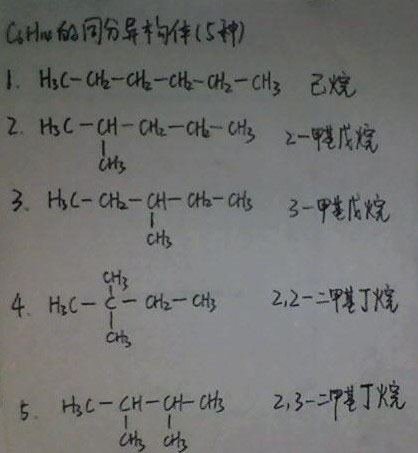 C6H14的同分异构体(5种)
1. H3C-CH2-CH2-CH2-CH2-CH3 己烷
2. H3C-CH-CH2-CH2-CH3 2-甲基戊烷
CH3
3. H3C-CH2-CH-CH2-CH3 3-甲基戊烷
CH3
CH3
4. H3C-C-CH2-CH3 2,2-二甲基丁烷
CH3
5. H3C-CH-CH-CH3 2,3-二甲基丁烷
CH3 CH3